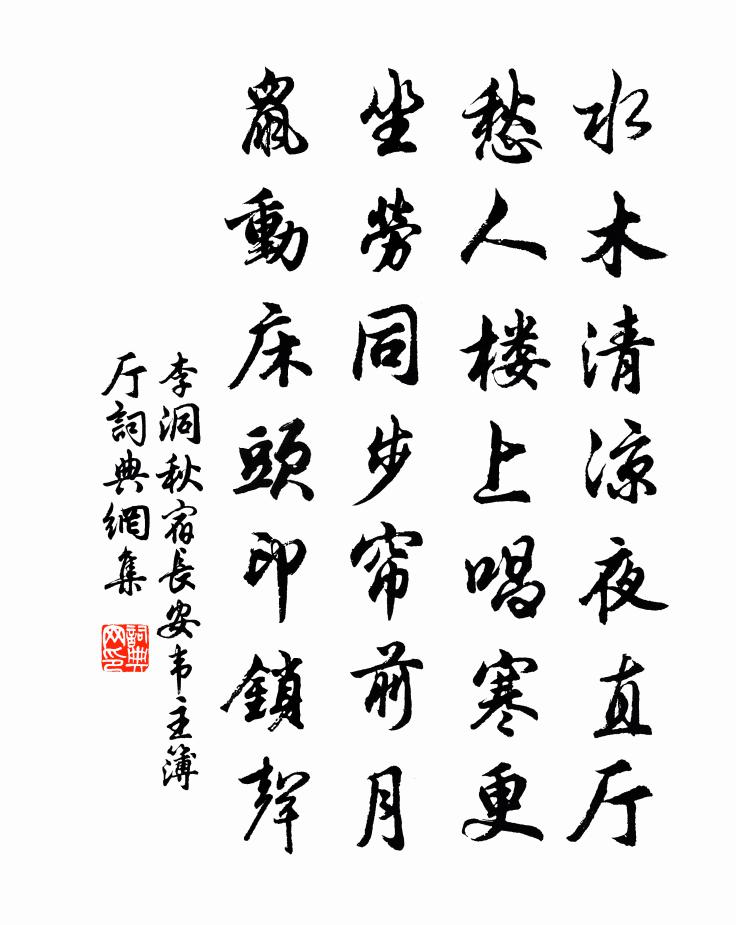 水木清凉夜直厅
愁人楼上唱寒更
坐劳同步帘前月
鼠動床頭印鎖聲
李洞秋宿長安韦主簿
厅詞典網集
詞典网印